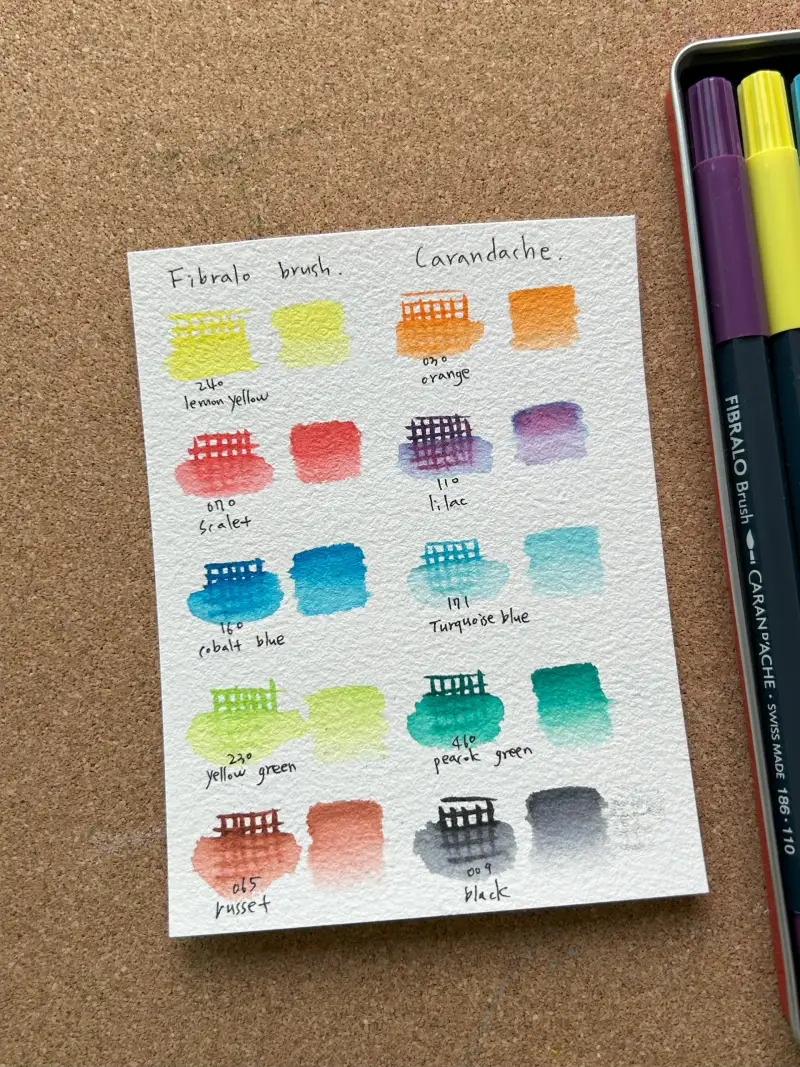 Fibralo brush.
Carandache.
240
lemon yellow
030
orange
070
Scalet
110
lilac
160
cobalt blue
171
Turquoise blue
230
yellow green
460
peacok green
065
russet
009
black
FIBRALO Brush CARAN D'ACHE · SWISS MADE 186 · 110